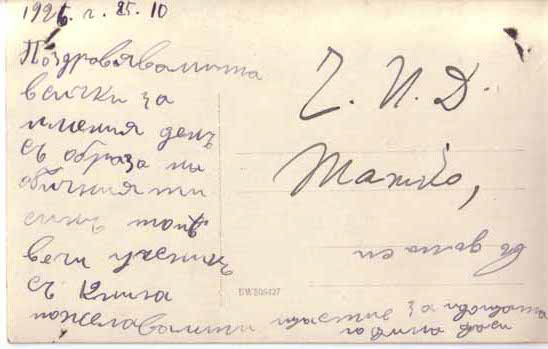 1925 г. 25. 10
Поздравявамита
всички за
имения день
съ образа на
обичния ти
синъ
вечи ученикъ
съ книга
пожелавамити щастие за идющата
година
Ч. И. Д.
Татко,
въ
BW506427